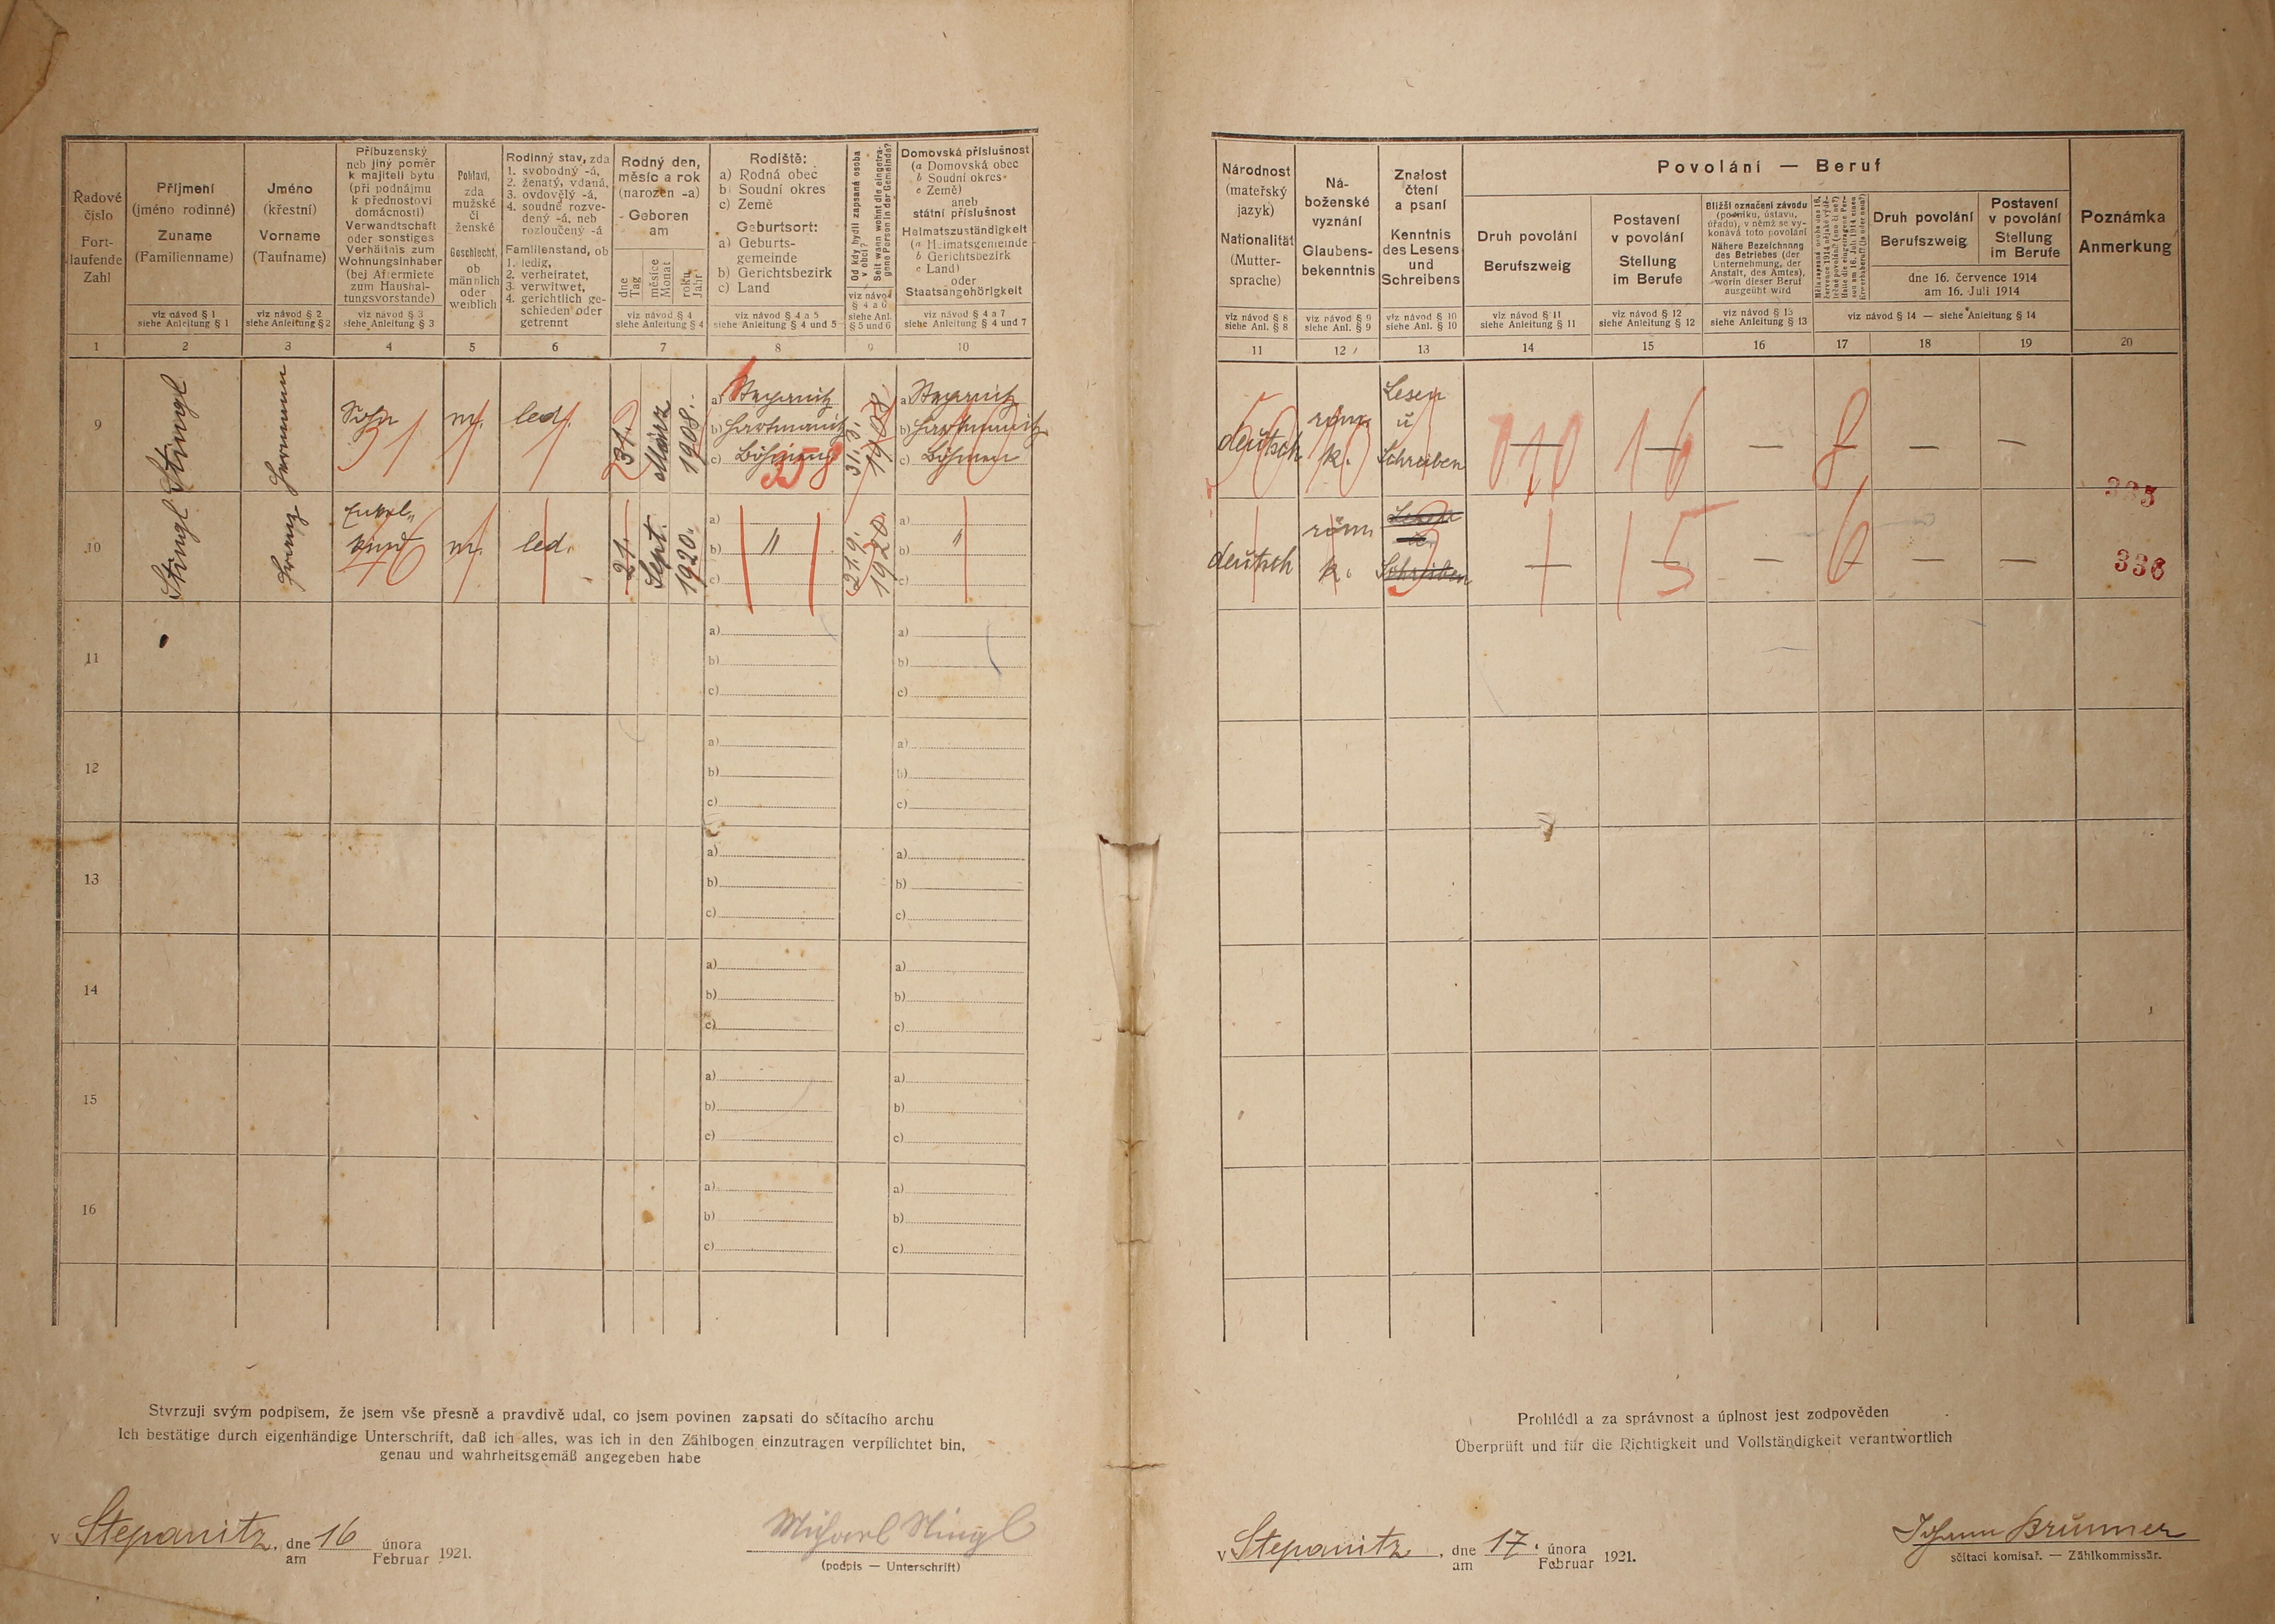 Řadové
číslo
Fort-
laufende
Zahl
1
Příjmení
(jméno rodinné)
Zuname
(Familienname)
viz návod § 1
siehe Anleitung § 1
2
Jméno
(křestní)
Vorname
(Taufname)
viz návod § 2
siehe Anleitung § 2
3
Příbuzenský
neb jiný poměr
k majiteli bytu
(při podnájmu
k přednostovi
domácnosti)
Verwandtschaft
oder sonstiges
Verhältnis zum
Wohnungsinhaber
(bei Aftermiete
zum Haushal-
tungsvorstande)
viz návod § 3
siehe Anleitung § 3
4
Pohlaví,
zda
mužské
či
ženské
Geschlecht,
ob
männlich
oder
weiblich
5
Rodinný stav, zda
1. svobodný -á,
2. ženatý, vdaná,
3. ovdovělý -á,
4. soudně rozve-
dený -á, neb
rozloučený -á
Familienstand, ob
1. ledig,
2. verheiratet,
3. verwitwet,
4. gerichtlich ge-
schieden oder
getrennt
6
Rodný den,
měsíc a rok
(narozen -a)
Geboren
am
dne
Tag
měsíce
Monat
roku
Jahr
viz návod § 4
siehe Anleitung § 4
7
Rodiště:
a) Rodná obec
b) Soudní okres
c) Země
Geburtsort:
a) Geburts-
gemeinde
b) Gerichtsbezirk
c) Land
viz návod § 4 a 5
siehe Anleitung § 4 und 5
8
Od kdy bydlí zapsaná osoba
v obci?
Seit wann wohnt die eingetra-
gene Person in der Gemeinde?
viz návod
§ 4 a 6
siehe Anl.
§ 5 und 6
9
Domovská příslušnost
(a Domovská obec
b Soudní okres
c Země)
aneb
státní příslušnost
Heimatszuständigkeit
(a Heimatsgemeinde
b Gerichtsbezirk
c Land)
oder
Staatsangehörigkeit
viz návod § 4 a 7
siehe Anleitung § 4 und 7
10
Národnost
(mateřský
jazyk)
Nationalität
(Mutter-
sprache)
viz návod § 8
siehe Anl. § 8
11
Ná-
boženské
vyznání
Glaubens-
bekenntnis
viz návod § 9
siehe Anl. § 9
12
Znalost
čtení
a psaní
Kenntnis
des Lesens
und
Schreibens
viz návod § 10
siehe Anl. § 10
13
Povolání — Beruf
Druh povolání
Berufszweig
viz návod § 11
siehe Anleitung § 11
14
Postavení
v povolání
Stellung
im Berufe
viz návod § 12
siehe Anleitung § 12
15
Bližší označení závodu
(podniku, ústavu,
úřadu), v němž se vy-
konává toto povolání
Nähere Bezeichnung
des Betriebes (der
Unternehmung, der
Anstalt, des Amtes),
worin dieser Beruf
ausgeübt wird
viz návod § 13
siehe Anleitung § 13
16
17
Druh povolání
Berufszweig
18
Postavení
v povolání
Stellung
im Berufe
19
dne 16. července 1914
am 16. Juli 1914
viz návod § 14 — siehe Anleitung § 14
Poznámka
Anmerkung
20
9 Stingl Hermann Sohn 31 m. led. 31. März 1908.
a) Stepanitz
b) Hartmanitz
c) Böhmen
358
31.3. 1908
a) Stepanitz
b) Hartmanitz
c) Böhmen
deutsch röm. k. Lesen
u
Schreiben
— — — — — —
335
10 Stingl Franz Enkel-
kind 46 m. led. 21. Sept. 1920.
a)
b) "
c)
21.9. 1920.
a)
b) "
c)
deutsch röm. k. Lesen
u.
Schreiben
— — — — — —
336
11
a) a)
b) b)
c) c)
12
a) a)
b) b)
c) c)
13
a) a)
b) b)
c) c)
14
a) a)
b) b)
c) c)
15
a) a)
b) b)
c) c)
16
a) a)
b) b)
c) c)
Stvrzuji svým podpisem, že jsem vše přesně a pravdivě udal, co jsem povinen zapsati do sčítacího archu
Ich bestätige durch eigenhändige Unterschrift, daß ich alles, was ich in den Zählbogen einzutragen verpflichtet bin,
genau und wahrheitsgemäß angegeben habe
v Stepanitz, dne 16 února
am Februar 1921.
Michael Stingl
(podpis — Unterschrift)
Prohlédl a za správnost a úplnost jest zodpověden
Überprüft und für die Richtigkeit und Vollständigkeit verantwortlich
v Stepanitz, dne 17. února
am Februar 1921.
Johann Brunner
sčítací komisař. — Zählkommissär.